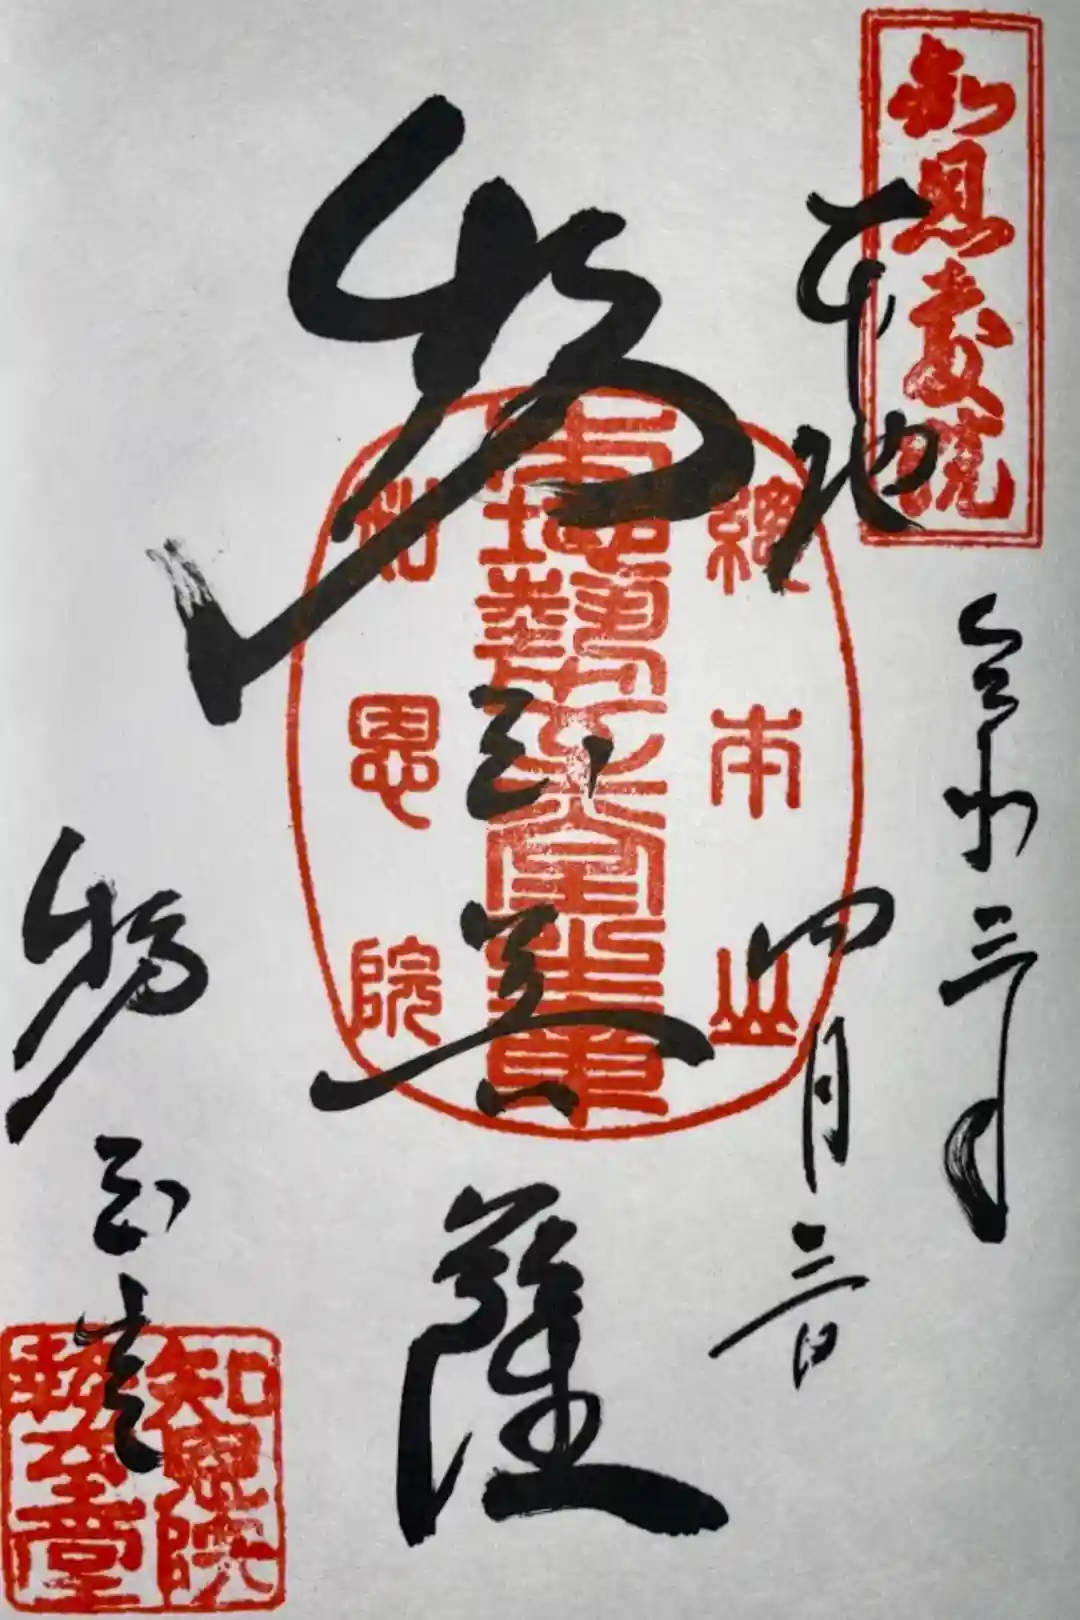 知恩教院
本地
令和三年
四月三日
總本山
知恩院
勢至菩薩
勢至堂
知恩院
勢至堂